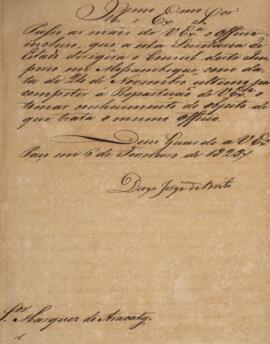 Illmo e Exmo Sor
Passo as mãos de V Exa o Officio
incluso, que a esta Secretaria de
Estado dirigira o Consul deste Im-
perio em
ta de 24 de Novembro
competir á Repartição de V Exa o
tomar conhecimento do objecto de
que trata o mesmo Officio.
Deus Guarde a V Exa
Paço em 6 de Fevereiro de 1828
Diogo Jorge de Brito
Sor Marquez de Aracaty